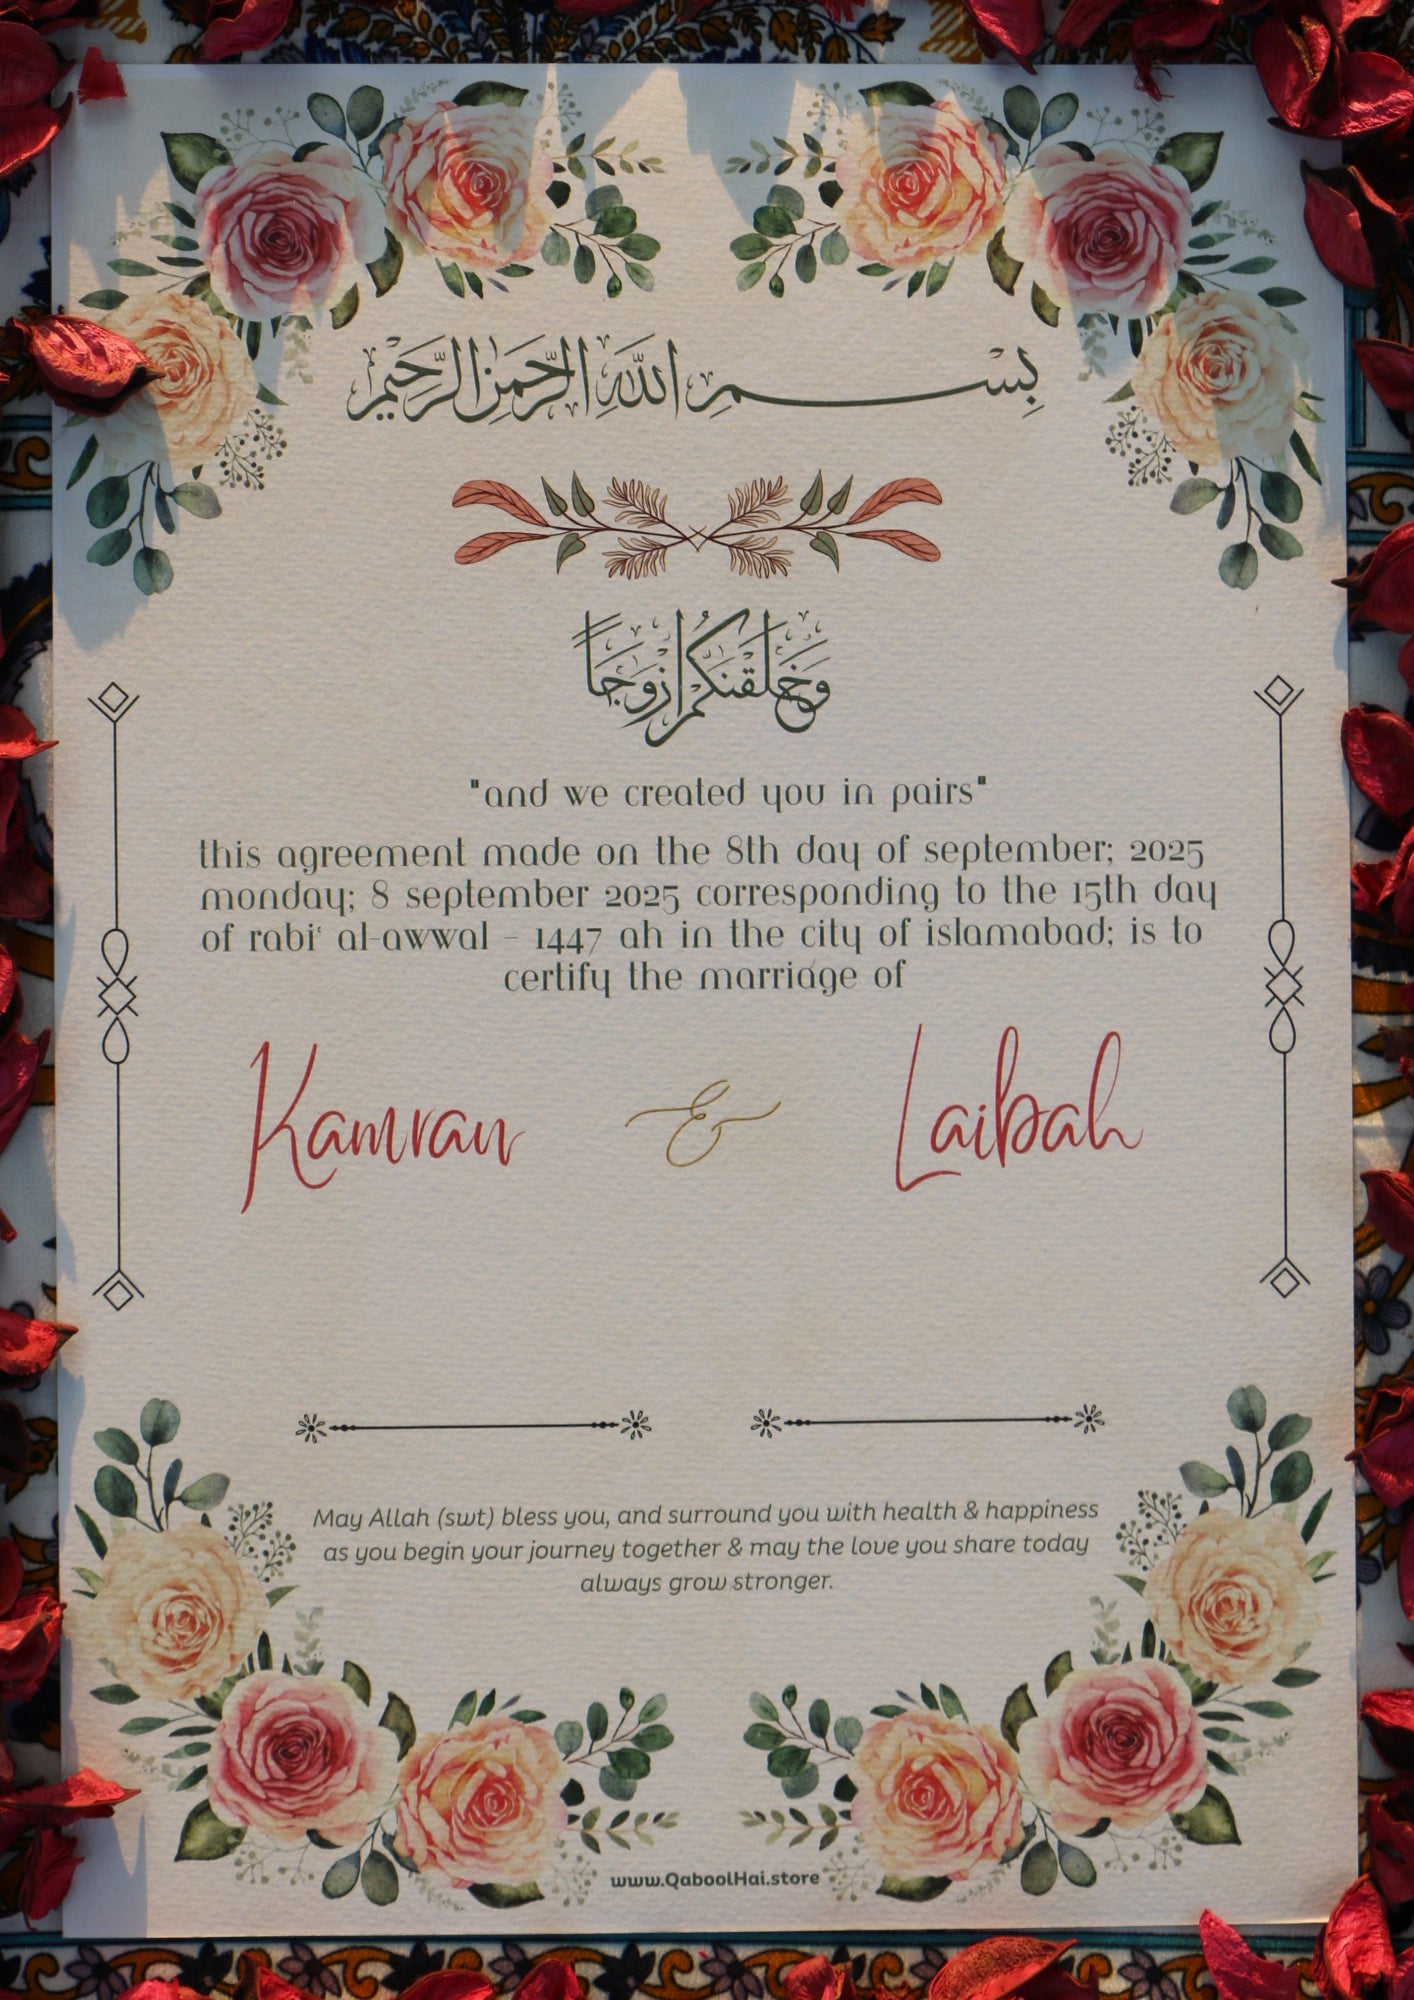 بِسْمِ اللهِ الرَّحْمٰنِ الرَّحِيْمِ
وَخَلَقْنٰكُمْ اَزْوَاجًا
"and we created you in pairs"
this agreement made on the 8th day of september; 2025
monday; 8 september 2025 corresponding to the 15th day
of rabiʿ al-awwal - 1447 ah in the city of islamabad; is to
certify the marriage of
Kamran & Laibah
May Allah (swt) bless you, and surround you with health & happiness
as you begin your journey together & may the love you share today
always grow stronger.
www.QaboolHai.store